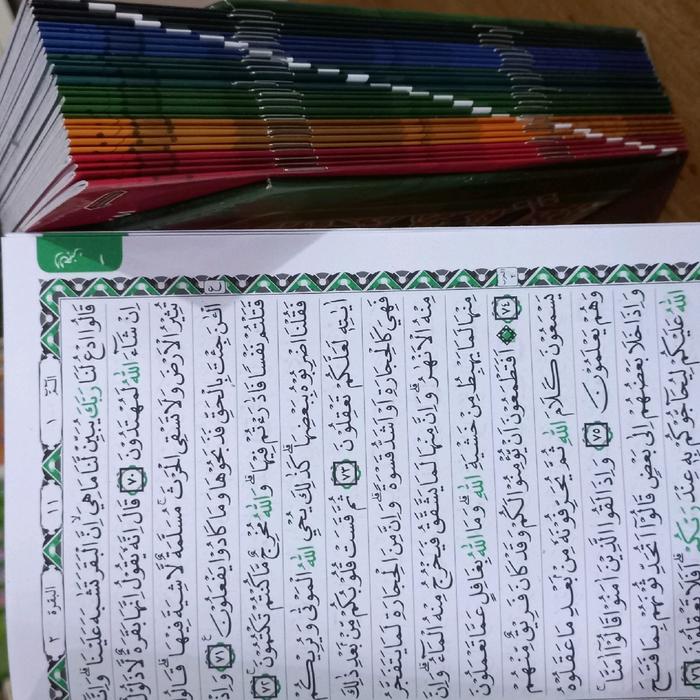 الٓمّٓ ١ ١١ البقرة ٢
قَالُوا ادْعُ لَنَا رَبَّكَ يُبَيِّنْ لَّنَا مَا هِيَ ۙ اِنَّ الْبَقَرَ تَشٰبَهَ عَلَيْنَا ۗ وَاِنَّآ
اِنْ شَآءَ اللّٰهُ لَمُهْتَدُوْنَ ٧٠ قَالَ اِنَّهٗ يَقُوْلُ اِنَّهَا بَقَرَةٌ لَّا ذَلُوْلٌ
تُثِيْرُ الْاَرْضَ وَلَا تَسْقِى الْحَرْثَ ۚ مُسَلَّمَةٌ لَّا شِيَةَ فِيْهَا ۗ قَالُوا
الْـٰٔنَ جِئْتَ بِالْحَقِّ ۗ فَذَبَحُوْهَا وَمَا كَادُوْا يَفْعَلُوْنَ ٧١ وَاِذْ
قَتَلْتُمْ نَفْسًا فَادّٰرَءْتُمْ فِيْهَا ۗ وَاللّٰهُ مُخْرِجٌ مَّا كُنْتُمْ تَكْتُمُوْنَ ٧٢
فَقُلْنَا اضْرِبُوْهُ بِبَعْضِهَا ۗ كَذٰلِكَ يُحْىِ اللّٰهُ الْمَوْتٰى وَيُرِيْكُمْ
اٰيٰتِهٖ لَعَلَّكُمْ تَعْقِلُوْنَ ٧٣ ثُمَّ قَسَتْ قُلُوْبُكُمْ مِّنْۢ بَعْدِ ذٰلِكَ
فَهِيَ كَالْحِجَارَةِ اَوْ اَشَدُّ قَسْوَةً ۗ وَاِنَّ مِنَ الْحِجَارَةِ لَمَا يَتَفَجَّرُ
مِنْهُ الْاَنْهٰرُ ۗ وَاِنَّ مِنْهَا لَمَا يَشَّقَّقُ فَيَخْرُجُ مِنْهُ الْمَآءُ ۗ وَاِنَّ
مِنْهَا لَمَا يَهْبِطُ مِنْ خَشْيَةِ اللّٰهِ ۗ وَمَا اللّٰهُ بِغَافِلٍ عَمَّا تَعْمَلُوْنَ
٧٤ اَفَتَطْمَعُوْنَ اَنْ يُّؤْمِنُوْا لَكُمْ وَقَدْ كَانَ فَرِيْقٌ مِّنْهُمْ
يَسْمَعُوْنَ كَلَامَ اللّٰهِ ثُمَّ يُحَرِّفُوْنَهٗ مِنْۢ بَعْدِ مَا عَقَلُوْهُ
وَهُمْ يَعْلَمُوْنَ ٧٥ وَاِذَا لَقُوا الَّذِيْنَ اٰمَنُوْا قَالُوْٓا اٰمَنَّا ۚ
وَاِذَا خَلَا بَعْضُهُمْ اِلٰى بَعْضٍ قَالُوْٓا اَتُحَدِّثُوْنَهُمْ بِمَا فَتَحَ
اللّٰهُ عَلَيْكُمْ لِيُحَاۤجُّوْكُمْ بِهٖ عِنْدَ رَبِّكُمْ ۗ اَفَلَا تَعْقِلُوْنَ